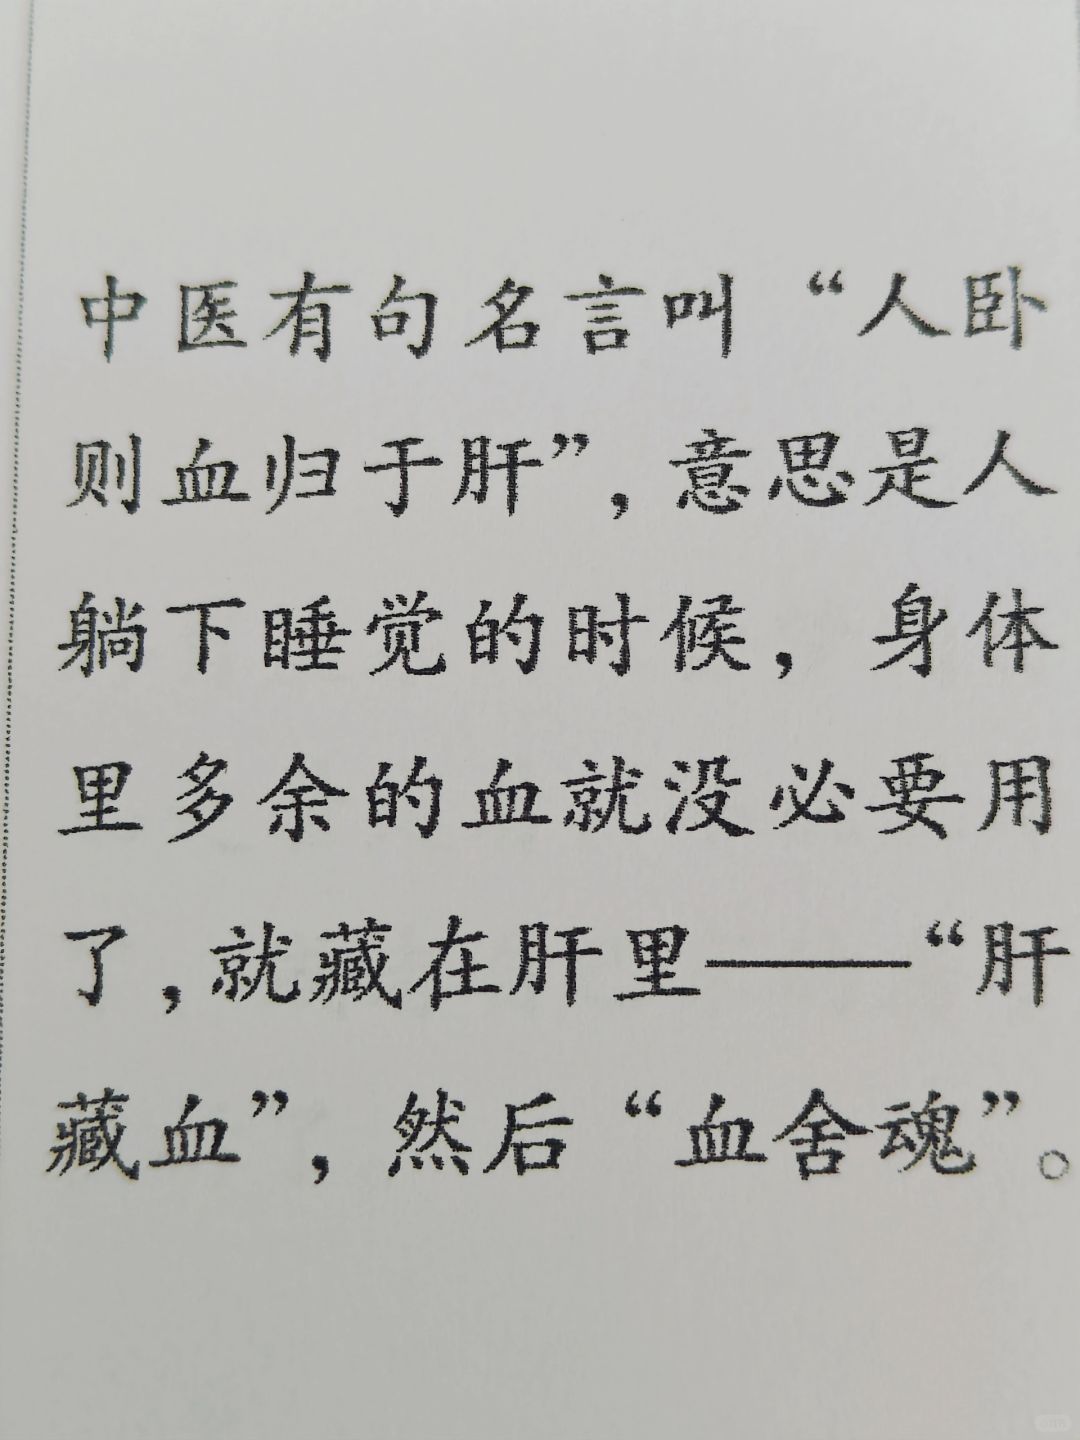 中医有句名言叫“人卧
则血归于肝”，意思是人
躺下睡觉的时候，身体
里多余的血就没必要用
了，就藏在肝里——“肝
藏血”，然后“血舍魂”。